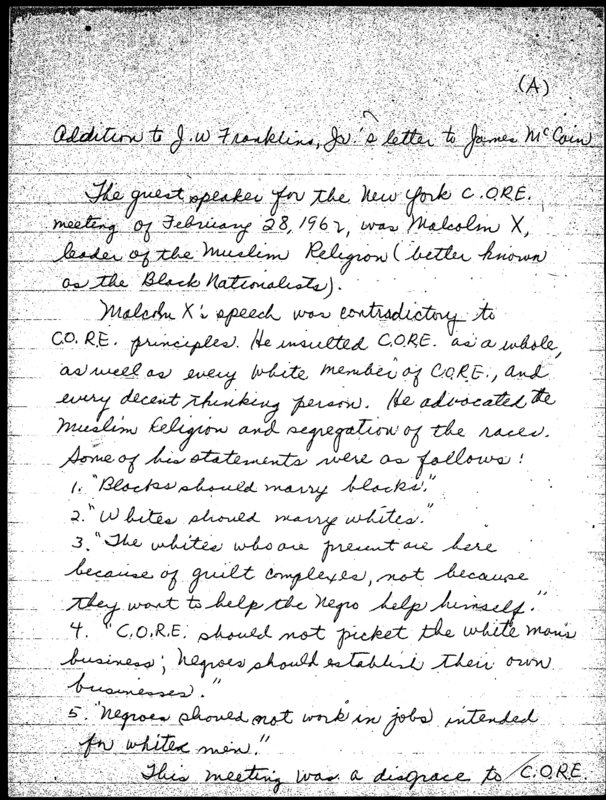 (A)
Addition to J.W Franklins, Jr.'s letter to James McCain
The guest speaker for the New York C.O.R.E.
meeting of February 28, 1962, was Malcolm X,
leader of the Muslim Religion (better known
as the Black Nationalists).
Malcolm X's speech was contradictory to
C.O.R.E. principles. He insulted C.O.R.E. as a whole,
as well as every white member of C.O.R.E., and
every decent thinking person. He advocated the
Muslim Religion and segregation of the races.
Some of his statements were as follows:
1. "Blacks should marry blacks."
2. "Whites should marry whites."
3. "The whites who are present are here
because of guilt complexes, not because
they want to help the Negro help himself."
4. "C.O.R.E. should not picket the white man's
business; Negroes should establish their own
businesses."
5. "Negroes should not work in jobs intended
for white men."
This meeting was a disgrace to C.O.R.E.